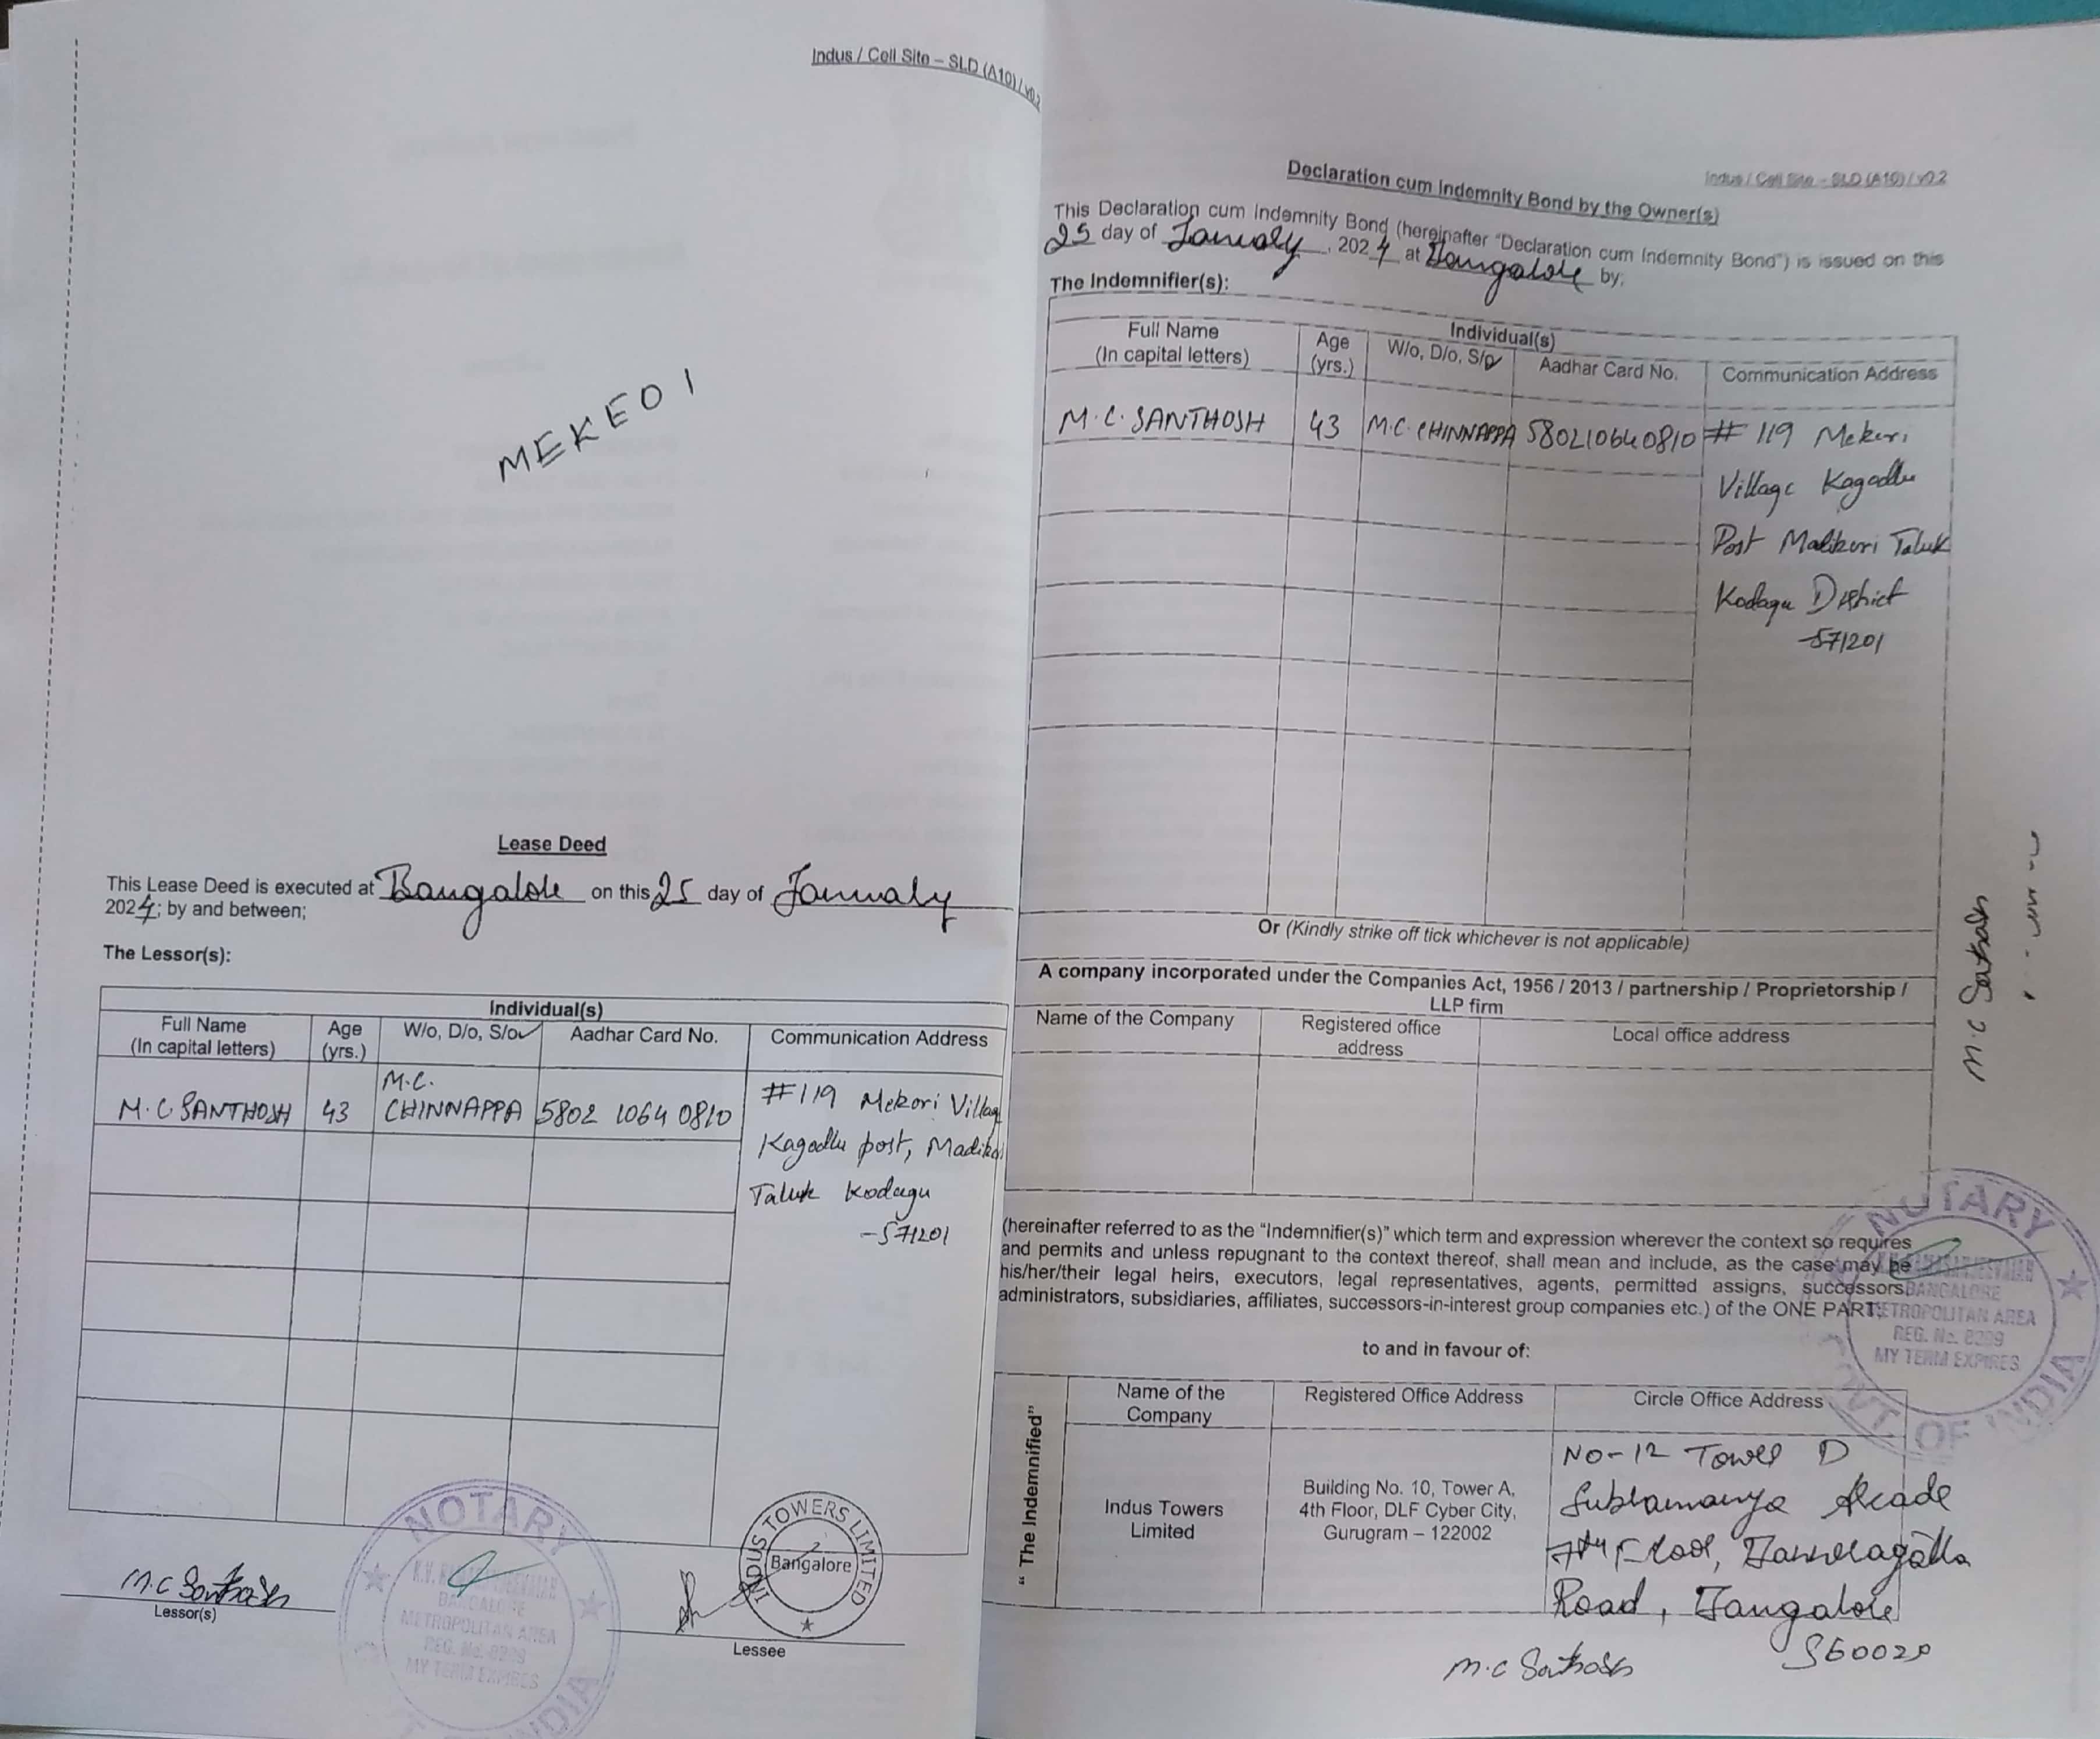 Indus / Cell Site – SLD (A10) / v0.2
MEKE01
Lease Deed
This Lease Deed is executed at Bangalole on this 25 day of Janualy
2024; by and between;
The Lessor(s):
Individual(s)
Full Name (In capital letters) Age (yrs.) W/o, D/o, S/o Aadhar Card No. Communication Address
M.C SANTHOSH 43 M.C. CHINNAPPA 5802 1064 0810 #119 Mekori Villag
Kagodlu post, Madike
Taluk Kodagu
-571201
M.C Santhosh
Lessor(s)
NOTARY
BANGALORE
METROPOLITAN AREA
REG. No. 8299
MY TERM EXPIRES
INDIA
INDUS TOWERS LIMITED
Bangalore
Lessee
Indus / Cell Site – SLD (A10) / v0.2
Declaration cum Indemnity Bond by the Owner(s)
This Declaration cum Indemnity Bond (hereinafter “Declaration cum Indemnity Bond”) is issued on this
25 day of Janualy, 2024 at Bangalole by;
The Indemnifier(s):
Individual(s)
Full Name (In capital letters) Age (yrs.) W/o, D/o, S/o Aadhar Card No. Communication Address
M.C. SANTHOSH 43 M.C. CHINNAPPA 580210640810 # 119 Mekeri
Village Kagodlu
Post Madikeri Taluk
Kodagu District
-571201
Or (Kindly strike off tick whichever is not applicable)
A company incorporated under the Companies Act, 1956 / 2013 / partnership / Proprietorship /
LLP firm
Name of the Company Registered office address Local office address
(hereinafter referred to as the “Indemnifier(s)” which term and expression wherever the context so requires
and permits and unless repugnant to the context thereof, shall mean and include, as the case may be
his/her/their legal heirs, executors, legal representatives, agents, permitted assigns, successors
administrators, subsidiaries, affiliates, successors-in-interest group companies etc.) of the ONE PART;
to and in favour of:
“The Indemnified”
Name of the Company Registered Office Address Circle Office Address
Indus Towers Limited
Building No. 10, Tower A,
4th Floor, DLF Cyber City,
Gurugram – 122002
NO-12 Towel D
Sublamanya Alcade
7th Flool, Bannelagatta
Road, Bangalole
560029
M.C Santhosh
M.C Santhosh
NOTARY
BANGALORE
METROPOLITAN AREA
REG. No. 8299
MY TERM EXPIRES
GOVT. OF INDIA